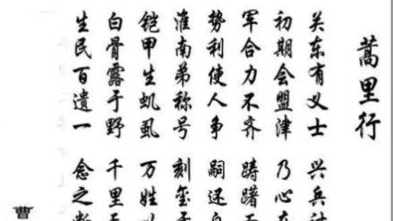 蒿里行
关东有义士 兴兵
初期会盟津 乃心
军合力不齐 踌躇
势利使人争 嗣还
淮南弟称号 刻玺
铠甲生虮虱 万姓
白骨露于野 千里
生民百遗一 念之
曹